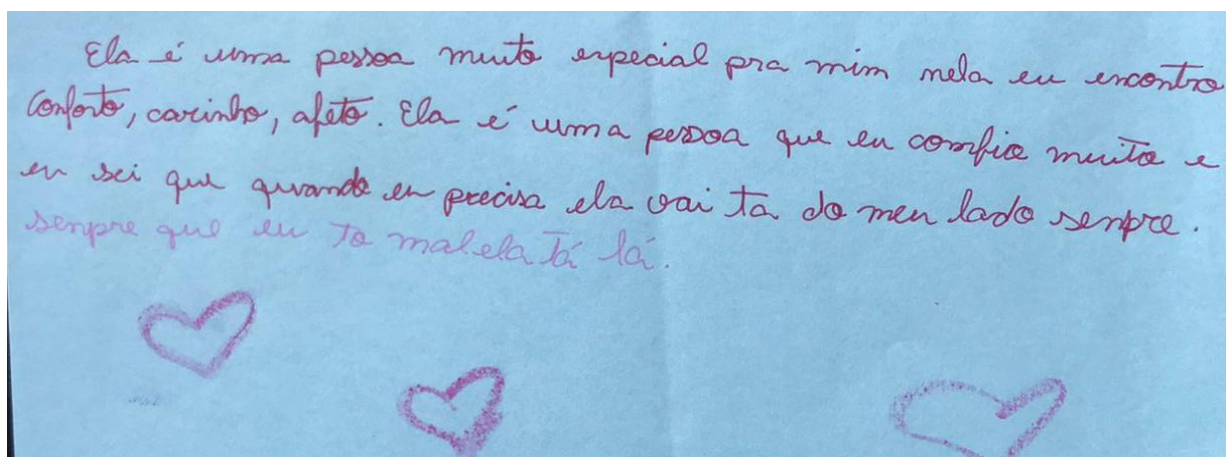 Ela é uma pessoa muito especial pra mim nela eu encontro
Conforto, carinho, afeto. Ela é uma pessoa que eu comfio muito e
eu sei que quando eu precisa ela vai ta do meu lado senpre.
senpre que eu to mal ela tá lá.